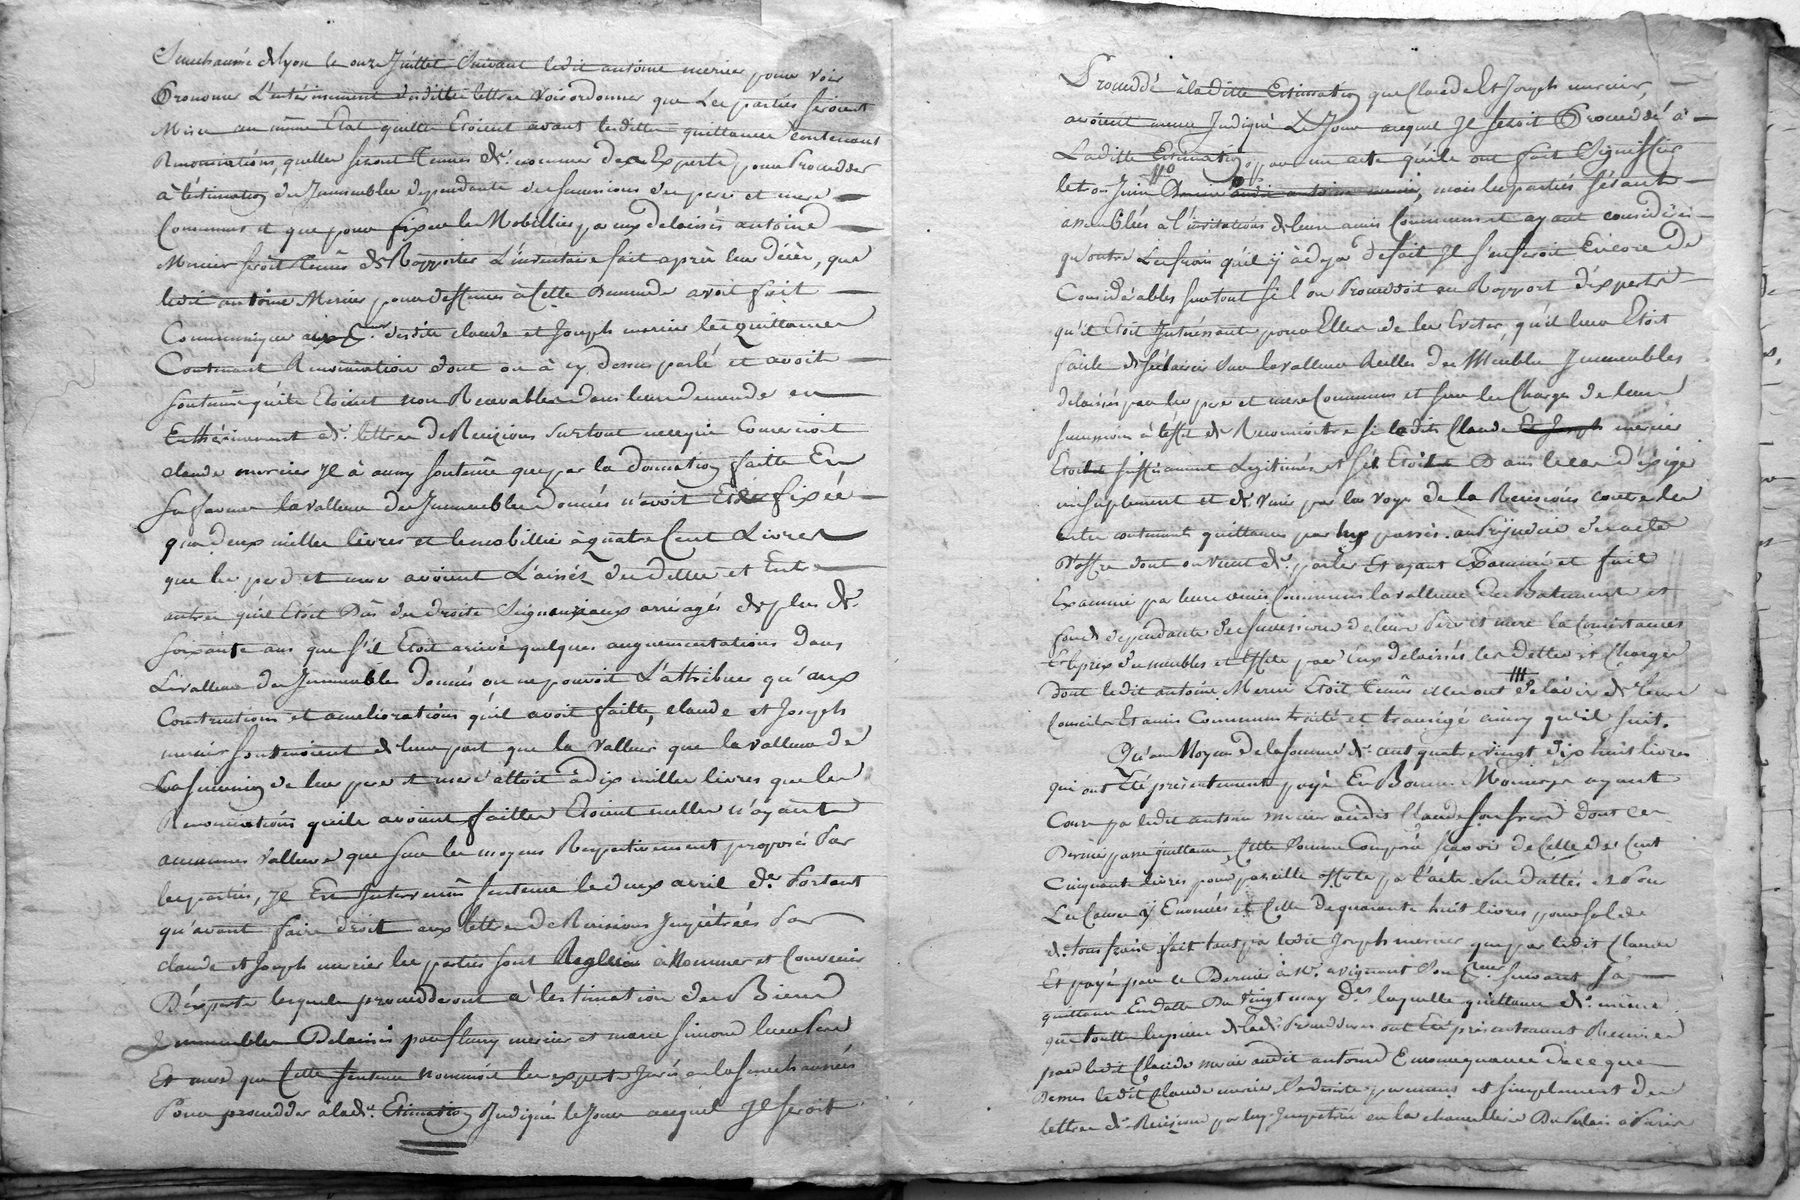 Senechaussé de lyon le onze Juillet Suivant ledit antoine mercier pour voir
Prononcer L'entérinement desdittes lettres voir ordonner que Les parties seroient
Mises au même Etat quelles Etoient avant lesdittes quittances contenant
Renonciations, quelles seront Tenues de nommer des Experts, pour Proceder
à l'estimation des Jmmeubles dependants des successions des pere et mere
Communs et que pour fixer le Mobillier par eux delaissés antoine
Mercier seroit Tenû de Rapporter L'inventaire fait après leur décès, que
ledit antoine Mercier pour deffenses à Cette Demande avoit fait
Communiquer aux desdits claude et Joseph mercier les quittances
Contenant Renonciation dont on à cy dessus parlé et avoit
soutenû qu'ils Etoient non Recevables dans leur demande en
Enthérinement de lettres de Recizions surtout en ce qui Concernoit
claude mercier Jl à aussy soutenû que par la donnation faitte En
sa faveur la valleur des Jmmeubles donnés n'avoit Eté fixée
qu'a deux milles livres et le mobillié à quatre Cent Livres
que les pere et mere avoient Laissés des dettes et Entr
autres qu'il Etoit Dûs des droits Seigneuriaux arréragés de plus de
soixante ans que s'il Etoit arrivé quelques augmentations dans
La valleur des Jmmeubles donnés on ne pouvoit L'attribuer qu'aux
Constructions et ameliorations qu'il avoit faitte, claude et Joseph
mercier soutenoient de leur part que la valleur que la valleur de
La succession de leur pere et mere alloit à dix milles livres que les
Renonciations qu'ils avoient faittes Etoient nulles n'ayants
aucunes valleurs que sur les moyens Respectivement proposés Par
les parties, Jl Est Intervenû sentence le deux avril der Portant
qu'avant faire droit aux lettres de Recisions Jmpétrées Par
claude et Joseph mercier les parties sont Reglées à Nommer et Convenir
D'experts lesquels procedderont à l'estimation des Biens
Jmmeubles Delaissés par fleury mercier et marie Simond leurs Pere
Et mere que Cette Sentence nommoit les experts Jurés en la Senechaussée
Pour procedder à lade Estimation Indiqués le Jour auquel Jl seroit
Proceddé à laditte Estimation que Claude Et Joseph mercier,
avoient même Indiqué Le Jour auquel Jl seroit Proceddé à
Laditte Estimation, par un acte qu'ils ont fait Signiffier
le Juin Dernier audit antoine mercier, mais les parties s'étant
assemblés à l'invitations de leurs amis Communs et ayant considéré
qu'outre Les frais qu'il ÿ à deja de fait Jl s'en feroit Encore de
Considérables surtout si l'on Proceddoit au Rapport d'experts
qu'il Etoit Intéressant pour Elles de les Eviter, qu'il leur Etoit
facile de s'éclaircir sur la valleur Reelles des Meubles Jmmeubles
delaissés par les pere et mere Communs et sur les Charges de leurs
successions à l'effet de Reconnoitre si ledits Claude Et Joseph mercier
Etoit suffisament Legitimés et s'il Etoit Dans le cas d'exiger
un suplement et de venir par la voye de la Recisions contre les
actes contenants quittances par luy passés au Préjudice de l'acte
D'offre dont on vient de parler Et ayant Examiné et fait
Examiné par leurs amis Communs la valleur des Batiments et
fonds dependants des successions de leurs Pere et mere la Consistances
Et le prix des meubles et effets par Eux delaissés les dettes et Charges
dont ledit antoine Mercier Etoit Tenû elles ont de l'avis de leurs
Conseils Et amis Communs traité et transigé ainsy qu'il suit.
Qu'au Moyen de la somme de cent quatre vingt dix huit livres
qui ont Eté présentement payé En Bonne Monnoye ayant
Cours par ledit antoine mercier audit Claude son frere dont ce
Dernier passe quittance, Cette somme Composé sçavoir de Celle de Cent
Cinquante livres pour pareille offerte par l'acte Sus datté et Pour
Les Causes ÿ Enoncées et Celle de quarante huit livres pour solde
de tous frais fait tant par ledit Joseph mercier que par ledit Claude
Et payé par ce Dernier à Me avignant Son suivant sa
quittance En datte Du Vingt may der laquelle quittance de même
que toutte les pieces de lade Procedure ont Eté présentement Remises
par ledit Claude mercier audit antoine En consequence de ce que
Dessus ledit Claude mercier, Se desiste purement et simplement des
lettres de Recision par luy Jmpetrées en la chancellerie Du Palais à Paris